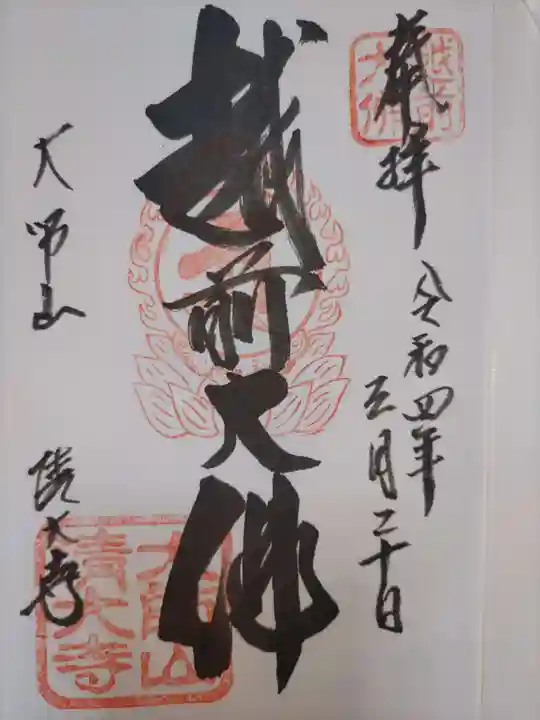 奉拝
令和四年
三月二十日
越前大佛
大師山
清大寺
越前
大佛
大師山
清大寺